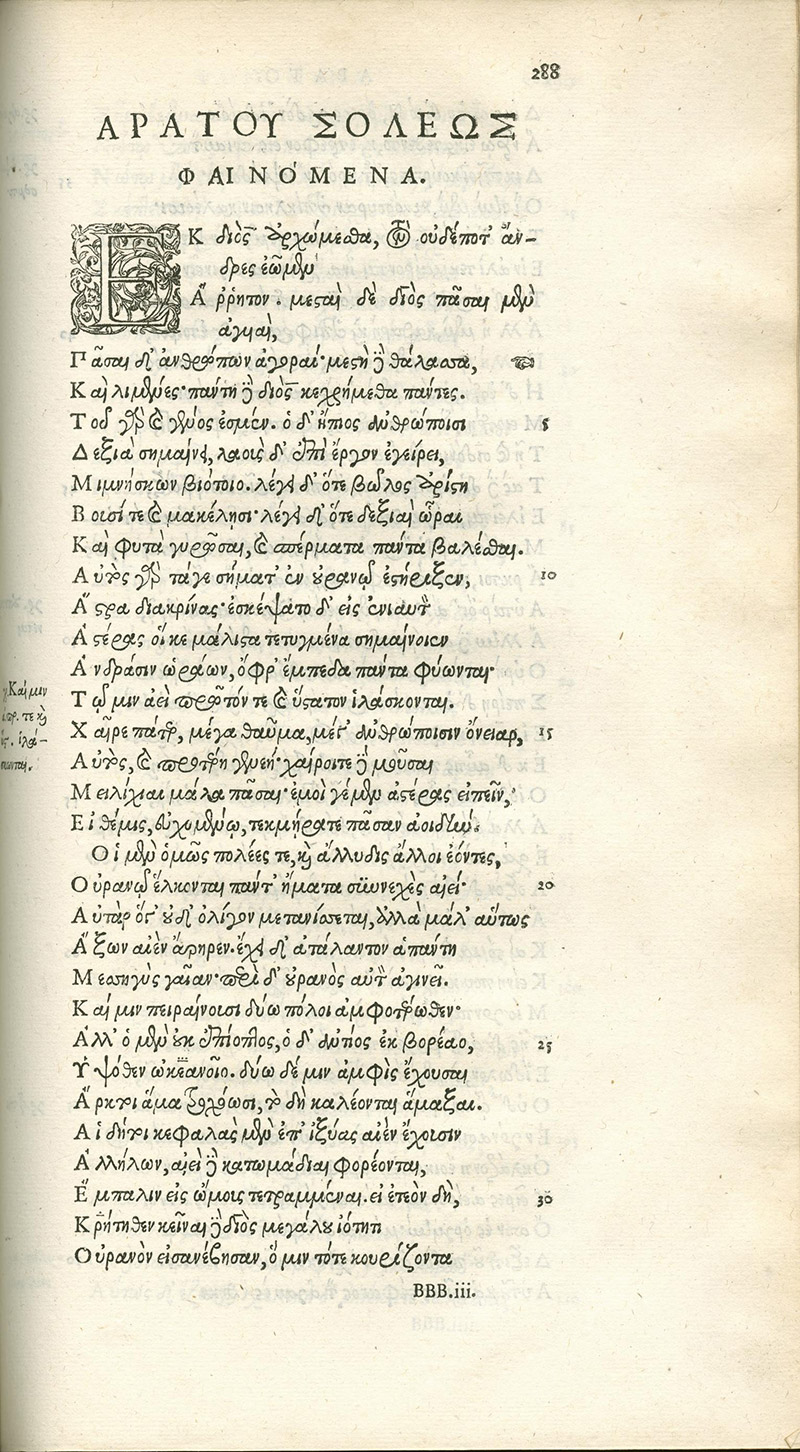 288
ΑΡΑΤΟΥ ΣΟΛΕΩΣ
ΦΑΙΝΌΜΕΝΑ.
ΕΚ διὸς ἀρχώμεσθα, τὸν οὐδέποτ' ἄν-
δρες ἐῶμεν
Ἄρρητον. μεσταὶ δὲ διὸς πᾶσαι μὲν
ἀγυιαὶ,
Πᾶσαι δ' ἀνθρώπων ἀγοραί· μεστὴ δὲ θάλασσα,
Καὶ λιμένες· πάντη δὲ διὸς κεχρήμεθα πάντες.
Τοῦ γὰρ καὶ γένος ἐσμέν. ὁ δ' ἤπιος ἀνθρώποισι 5
Δεξιὰ σημαίνει, λαοὺς δ' ἐπὶ ἔργον ἐγείρει,
Μιμνήσκων βιότοιο. λέγει δ' ὅτε βῶλος ἀρίστη
Βουσί τε καὶ μακέλῃσι· λέγει δ' ὅτε δεξιαὶ ὧραι
Καὶ φυτὰ γυρῶσαι, καὶ σπέρματα πάντα βαλέσθαι.
Αὐτὸς γὰρ τάγε σήματ' ἐν οὐρανῷ ἐστήριξεν, 10
Ἄστρα διακρίνας· ἐσκέψατο δ' εἰς ἐνιαυτὸν
Ἀστέρας οἵ κε μάλιστα τετυγμένα σημαίνοιεν
Ἀνδράσιν ὡράων, ὄφρ' ἔμπεδα πάντα φύωνται·
Τῷ μιν ἀεὶ πρῶτόν τε καὶ ὕστατον ἱλάσκονται.
Χαῖρε πάτερ, μέγα θαῦμα, μέγ' ἀνθρώποισιν ὄνειαρ, 15
Αὐτὸς, καὶ προτέρη γενεή· χαίροιτε δὲ μοῦσαι
Μειλίχιαι μάλα πᾶσαι· ἐμοί γέ μὲν ἀστέρας εἰπεῖν,
Εἰ θέμις, εὐχομένῳ, τεκμήρατε πᾶσαν ἀοιδήν.
Οἱ μὲν ὁμῶς πολέες τε, καὶ ἄλλυδις ἄλλοι ἐόντες,
Οὐρανῷ ἕλκονται πάντ' ἤματα συνεχὲς αἰεί· 20
Αὐτὰρ ὅγ' οὐδ' ὀλίγον μετανίσσεται, ἀλλὰ μάλ' αὕτως
Ἄξων αἰὲν ἄρηρεν. ἔχει δ' ἀτάλαντον ἁπάντη
Μεσσηγὺς γαῖαν· περὶ δ' οὐρανὸς αὐτὸν ἀγινεῖ.
Καί μιν πειραίνουσι δύω πόλοι ἀμφοτέρωθεν·
Ἀλλ' ὁ μὲν οὐκ ἐπίοπτος, ὁ δ' ἀντίος ἐκ βορέαο, 25
Ὑψόθεν ὠκεανοῖο. δύω δέ μιν ἀμφὶς ἔχουσαι
Ἄρκτοι ἅμα τροχόωσι, τὸ δὴ καλέονται ἅμαξαι.
Αἱ δήτοι κεφαλὰς μὲν ἐπ' ἰξύας αἰὲν ἔχουσιν
Ἀλλήλων, αἰεὶ δὲ κατωμάδιαι φορέονται,
Ἔμπαλιν εἰς ὤμους τετραμμέναι. εἰ ἐτεὸν δὴ, 30
Κρήτηθεν κεῖναι δὲ διὸς μεγάλου ἰότητι
Οὐρανὸν εἰσανέβησαν, ὅ μιν τότε κουρίζοντα
BBB.iii.
Καί μιν
τε καὶ